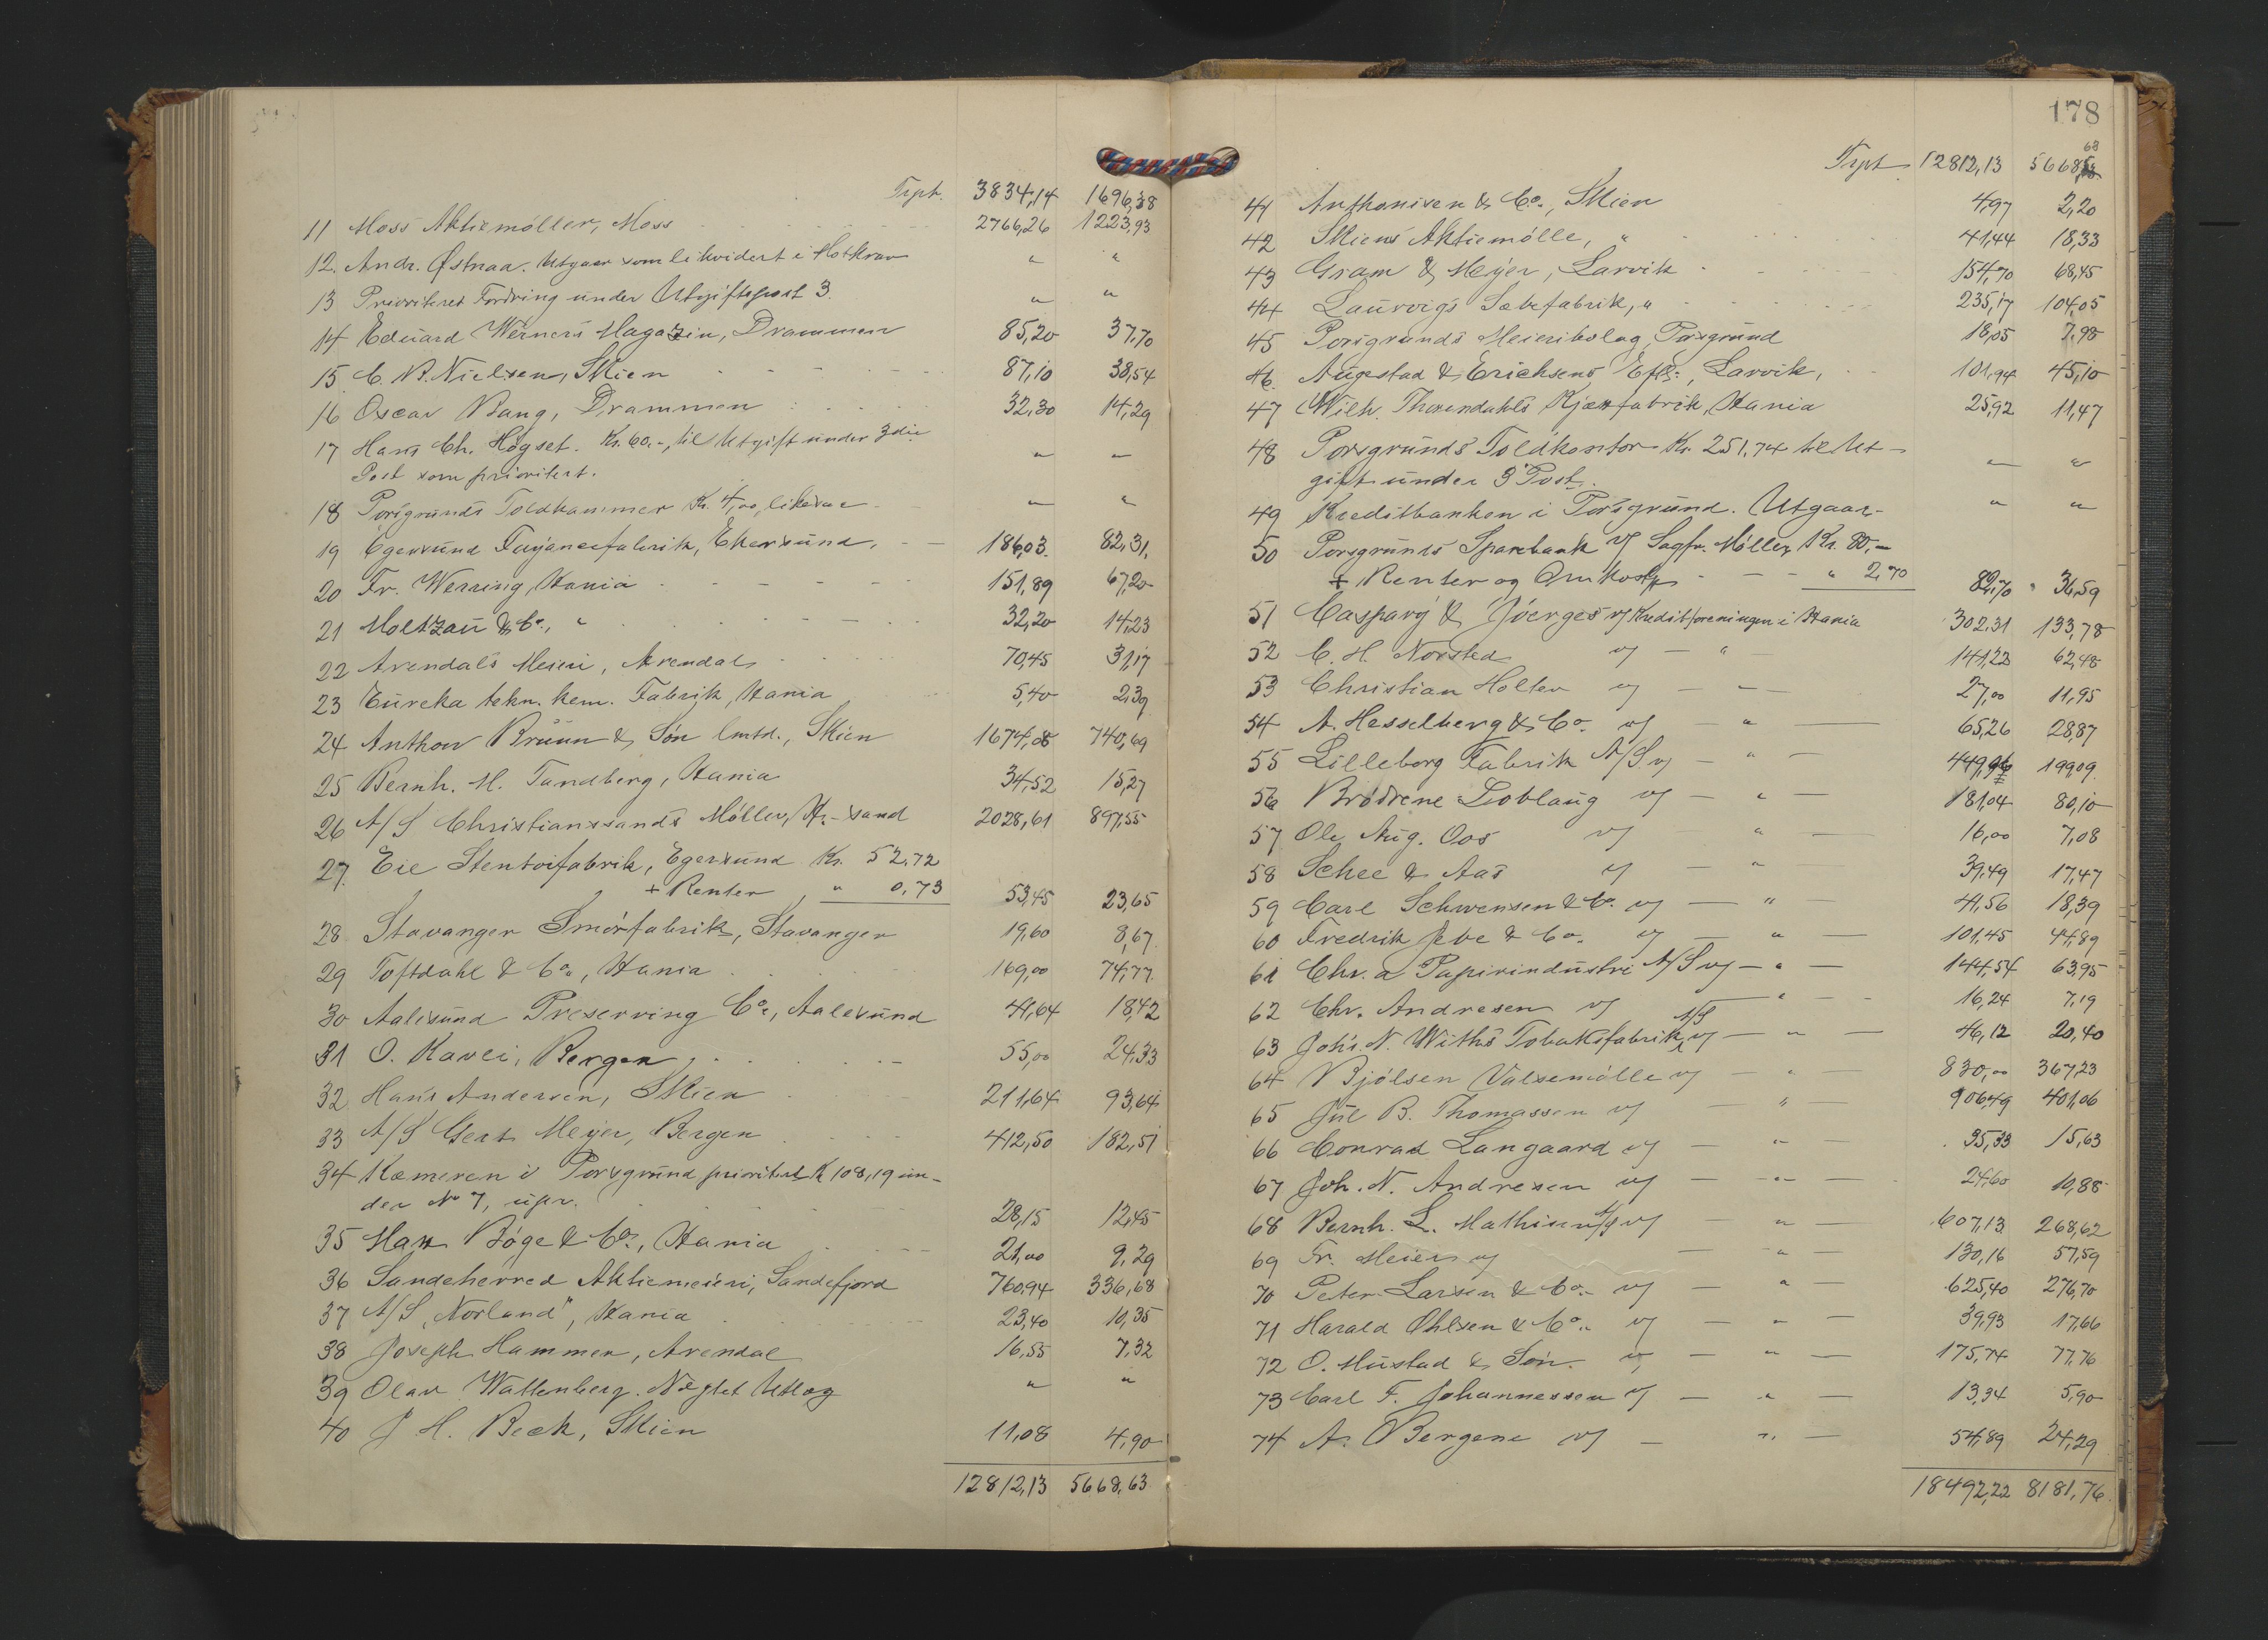 Trpt. 3834,14 1696,38
11 Moss Aktiemöller, Moss 2766,26 1223,93
12. Andr. Østnaa. Utgaar som likvidert i Motkrav " "
13 Prioriteret Fordring under Utgiftspost 3. " "
14 Eduard Werners Magazin, Drammen 85,20 37,70
15 C. B. Nielsen, Skien 87,10 38,54
16 Oscar Bang, Drammen 32,30 14,29
17 Hans Ch. Høgset. Kr. 60.-, til Utgift under 3die
Post som prioritert. " "
18 Porsgrunds Toldkammer Kr. 4,00, likesaa " "
19 Egersund Fayancefabrik, Ekersund, 186,03. 82,31.
20 Fr. Werring, Kania 151,89 67,20
21 Moltzau & Co., " 32,20 14,23
22 Arendals Meieri, Arendal 70,45 31,17
23 Eureka tekn. kem. Fabrik, Kania 5,40 2,39
24 Anthon Bruun & Søn lmtd., Skien 1674,08 740,69
25 Bernh. M. Tandberg, Kania 34,52 15,27
26 A/S Christianssands Möller, Kr.-sand 2028,61 897,55
27. Eie Stentøifabrik, Egersund Kr. 52,72
+ Renter " 0,73 53,45 23,65
28 Stavanger Smørfabrik, Stavanger 19,60 8,67
29 Toftdahl & Co., Kania 169,00 74,77
30 Aalesund Preserving Co., Aalesund 41,64 18,42
31 O. Kavli, Bergen 55,00 24,33
32 Hans Andersen, Skien 211,64 93,64
33 A/S Gert Meyer, Bergen 412,50 182,51
34 Kæmneren i Porsgrund prioritert K 108,19 un-
der No 7, upr. 28,15 12,45
35 Max Bøge & Co., Kania 21,00 9,29
36 Sandeherred Aktiemeieri, Sandefjord 760,94 336,68
37 A/S „Norland", Kania 23,40 10,35
38 Joseph Hammer, Arendal 16,55 7,32
39 Olav Wattenberg. Nægtet Utlæg " "
40 J. H. Beck, Skien 11,08 4,90
12812,13 5668,63
178
Trpt 12812,13 5668, 68
41 Anthonisen & Co., Skien 4,97 2,20
42 Skiens Aktiemölle, " 41,44 18,33
43 Gram & Meyer, Larvik 154,70 68,45
44 Laurvigs Sæbefabrik, " 235,17 104,05
45 Porsgrunds Meieribolag, Porsgrund 18,05 7,98
46. Augestad & Erichsens Eftf., Larvik, 101,94 45,10
47 Wilh. Thorendahls Kjæxfabrik, Kania 25,92 11,47
48 Porsgrunds Toldkontor Kr. 251,74 til Ut-
gift under 3' Post. " "
49 Kreditbanken i Porsgrund. Utgaar- " "
50 Porsgrunds Sparebank v/ Sagfr. Möller Kr. 80,-
+ Renter og Omkostn " 2,70 82,70 36,59
51 Caspary & Joerges v/ Kreditforeningen i Kania 302,31 133,78
52 C. H. Norsted v/ — " — 141,22 62,48
53 Christian Holter v/ — " — 27,00 11,95
54 A. Hesselberg & Co. v/ — " — 65,26 28,87
55 Lilleborg Fabrik A/S v/ — " — 449,96 199,09
56 Brødrene Loblaug v/ — " — 181,04 80,10
57 Ole Aug. Oos v/ " — 16,00 7,08
58 Schee & Aas v/ — " — 39,49 17,47
59 Carl Schwensen & Co. v/ — " 41,56 18,39
60 Fredrik Jebe & Co. v/ — " — 101,45 44,89
61 Chr.a Papirindustri A/S v/ — " — 144,54 63,95
62 Chr. Andresen v/ — " — 16,24 7,19
63 Johs. N. Withs Tobaksfabrik A/S v/ — " — 46,12 20,40
64 Bjølsen Valsemølle v/ — " — 830,00 367,23
65 Jul B. Thomassen v/ — " — 906,49 401,06
66 Conrad Langaard v/ — " — 35,33 15,63
67 Joh. N. Andresen v/ — " — 24,60 10,88
68 Bernh. L. Mathisen A/S v/ — " — 607,13 268,62
69 Fr. Meier v/ — " — 130,16 57,59
70 Peter Larsen & Co. v/ — " — 625,40 276,70
71 Harald Ohlsen & Co. v/ — " — 39,93 17,66
72 O. Mustad & Søn. v/ — " — 175,74 77,76
73 Carl F. Johannessen v/ — " — 13,34 5,90
74 A. Bergene v/ — " — 54,89 24,29
18492,22 8181,76